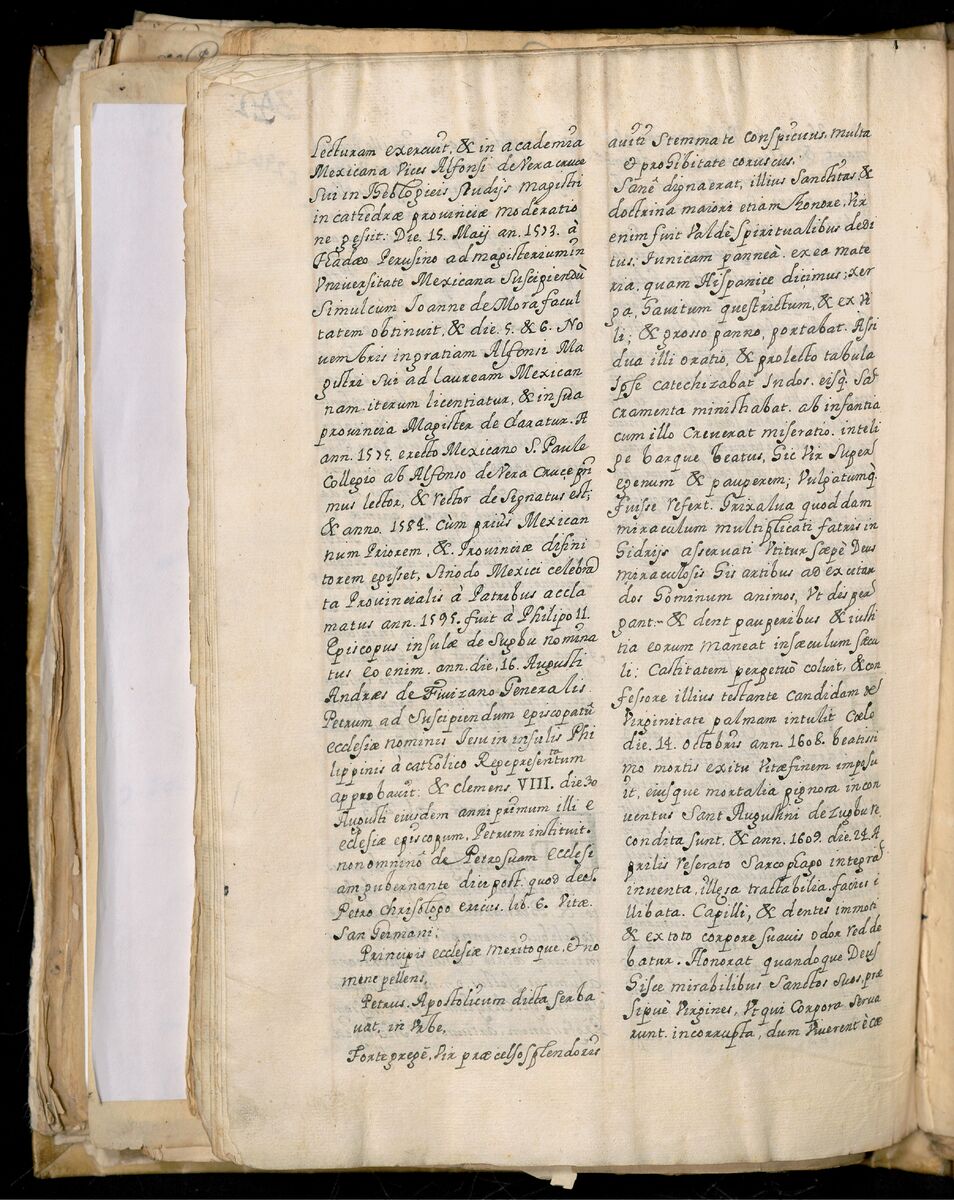 Lecturam exercuit, & in academia
Mexicana Vices Alfonsi de Vera cruce
Sui in Theologicis studijs magistri
in cathedræ provinciæ moderatio
ne gessit: Die. 15. Maij an. 1573. à
Thadæo Perusino ad magisterium in
Vniversitate Mexicana Suscipiendũ
Simul cum Ioanne de Mora facul
tatem obtinuit, & die. 5. & 6. No
uembris in gratiam Alfonsi Ma
gistri Sui ad lauream Mexican
nam. iterum licentiatur, & in sua
provincia Magister de claratur. A
ann. 1575. erecto Mexicano S. Paule
Collegio ab Alfonso de Vera Cruce, pri
mus lector, & rector de Signatus est;
& anno. 1584. cùm priùs Mexican
num Priorem, & Provinciæ difini
torem egisset, Sinodo Mexici celebra
ta Provincialis à Patribus accla
matus ann. 1595. fuit à Philipo 11.
Episcopus insulæ de Sugbu nomina
tus eo enim. ann. die, 16. Augusti
Andræs de Fivizano Generalis.
Petrum ad Suscipiendum episcopatũ
ecclesiæ nominis Iesu in insulis Phi
lippinis à catholico Rege præsentatum
approbavit: & Clemens VIII. die 30
Augusti eiusdem anni primum illi e
cclesiæ episcopum. Petrum instituit.
non omninò de Petro suam Ecclesi
am gubernante dici post. quod de S.
Petro Chrisologo ericus. lib. 6. Vitæ.
San Germani:
Principis ecclesiæ merito que, et no
mene pellens,
Petrus. Apostolicum dicta serba
uat, in Vrbe,
Forte gregẽ, Vir præcelso splendoris
auiti Stemmate Conspicuus. multa
& prohibitate coruscus.
Sanè digna erat, illius Sanctitas &
doctrina maiori etiam honore. Vir
enim fuit Valdè spiritualibus dedi
tus; Tunicam panneà. ex ea mate
ria. quam Hispanice dicimus; xer
ga, havitum que strictum, & ex Vi
li; & grosso panno, portabat. Assi
dua illi oratio, & pro lecto tabula
Ipse Catechizabat Indos. eisq̃. Sa
cramenta ministrabat. ab infantia
cum illo Creverat miseratio. inteli
pe barque beatus, hic Vir Super
egenum & pauperem; Vulgatumq̃.
fuisse refert. Grixalua quoddam
miraculum multiplicati fatris in
hidrijs asservati Vtitur sæpè Deus
miraculosis his artibus ad excitan
dos hominum animos, Vt disper
gant & dent pauperibus & iusti
tia eorum maneat in sæculum sæcu
li; Castitatem perpetuò coluit, & con
fesore illius testante Candidam
Virginitate palmam intulit Cœlo
die. 14. octobris ann. 1608. beatissi
mo mortis exitu Vitæ finem imposu
it, eiusque mortalia pignora in con
uentus Sant Augustini de Zugbu re
condita sunt, & ann. 1609. die. 24. A
prilis reserato Sarcophago integra
inuenta, illæsa tractabilia. facies i
llibata. Capilli, & dentes immoti
& ex toto corpore suauis odor redde
batur. Honorat quandoque Deus
hisce mirabilibus Sanctos Suos, præ
sipuè Virgines, Vt qui Corpora Serua
runt. incorrupta, dum Viverent è cæ